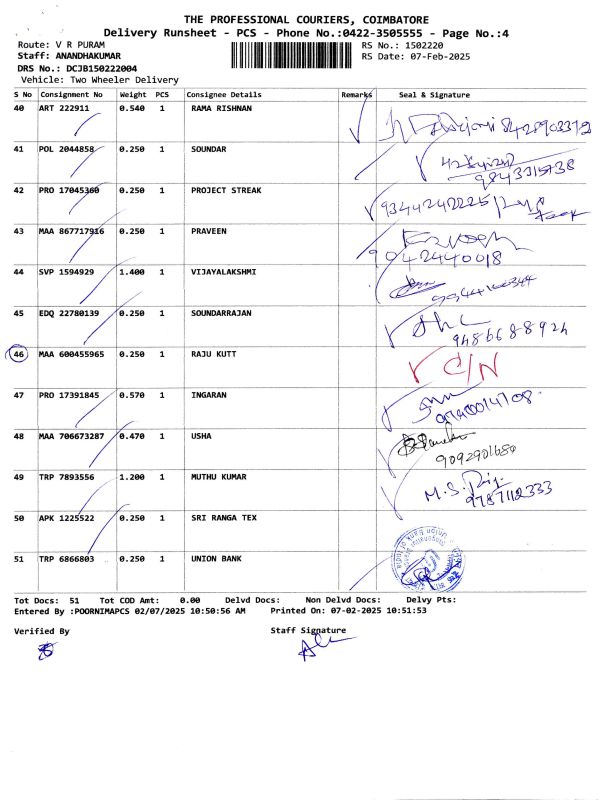 THE PROFESSIONAL COURIERS, COIMBATORE
Delivery Runsheet - PCS - Phone No.:0422-3505555 - Page No.:4
Route: V R PURAM RS No.: 1502220
Staff: ANANDHAKUMAR RS Date: 07-Feb-2025
DRS No.: DCJB150222004
Vehicle: Two Wheeler Delivery
S No Consignment No Weight PCS Consignee Details Remarks Seal & Signature
40 ART 222911 0.540 1 RAMA RISHNAN
41 POL 2044858 0.250 1 SOUNDAR
9843315738
42 PRO 17045360 0.250 1 PROJECT STREAK
9344242225
43 MAA 867717916 0.250 1 PRAVEEN
9042440018
44 SVP 1594929 1.400 1 VIJAYALAKSHMI
45 EDQ 22780139 0.250 1 SOUNDARRAJAN
9486688924
46 MAA 600455965 0.250 1 RAJU KUTT C/N
47 PRO 17391845 0.570 1 INGARAN
48 MAA 706673287 0.470 1 USHA
9092901680
49 TRP 7893556 1.200 1 MUTHU KUMAR
9787112333
50 APK 1225522 0.250 1 SRI RANGA TEX
51 TRP 6866803 0.250 1 UNION BANK
Tot Docs: 51 Tot COD Amt: 0.00 Delvd Docs: Non Delvd Docs: Delvy Pts:
Entered By :POORNIMAPCS 02/07/2025 10:50:56 AM Printed On: 07-02-2025 10:51:53
Verified By Staff Signature